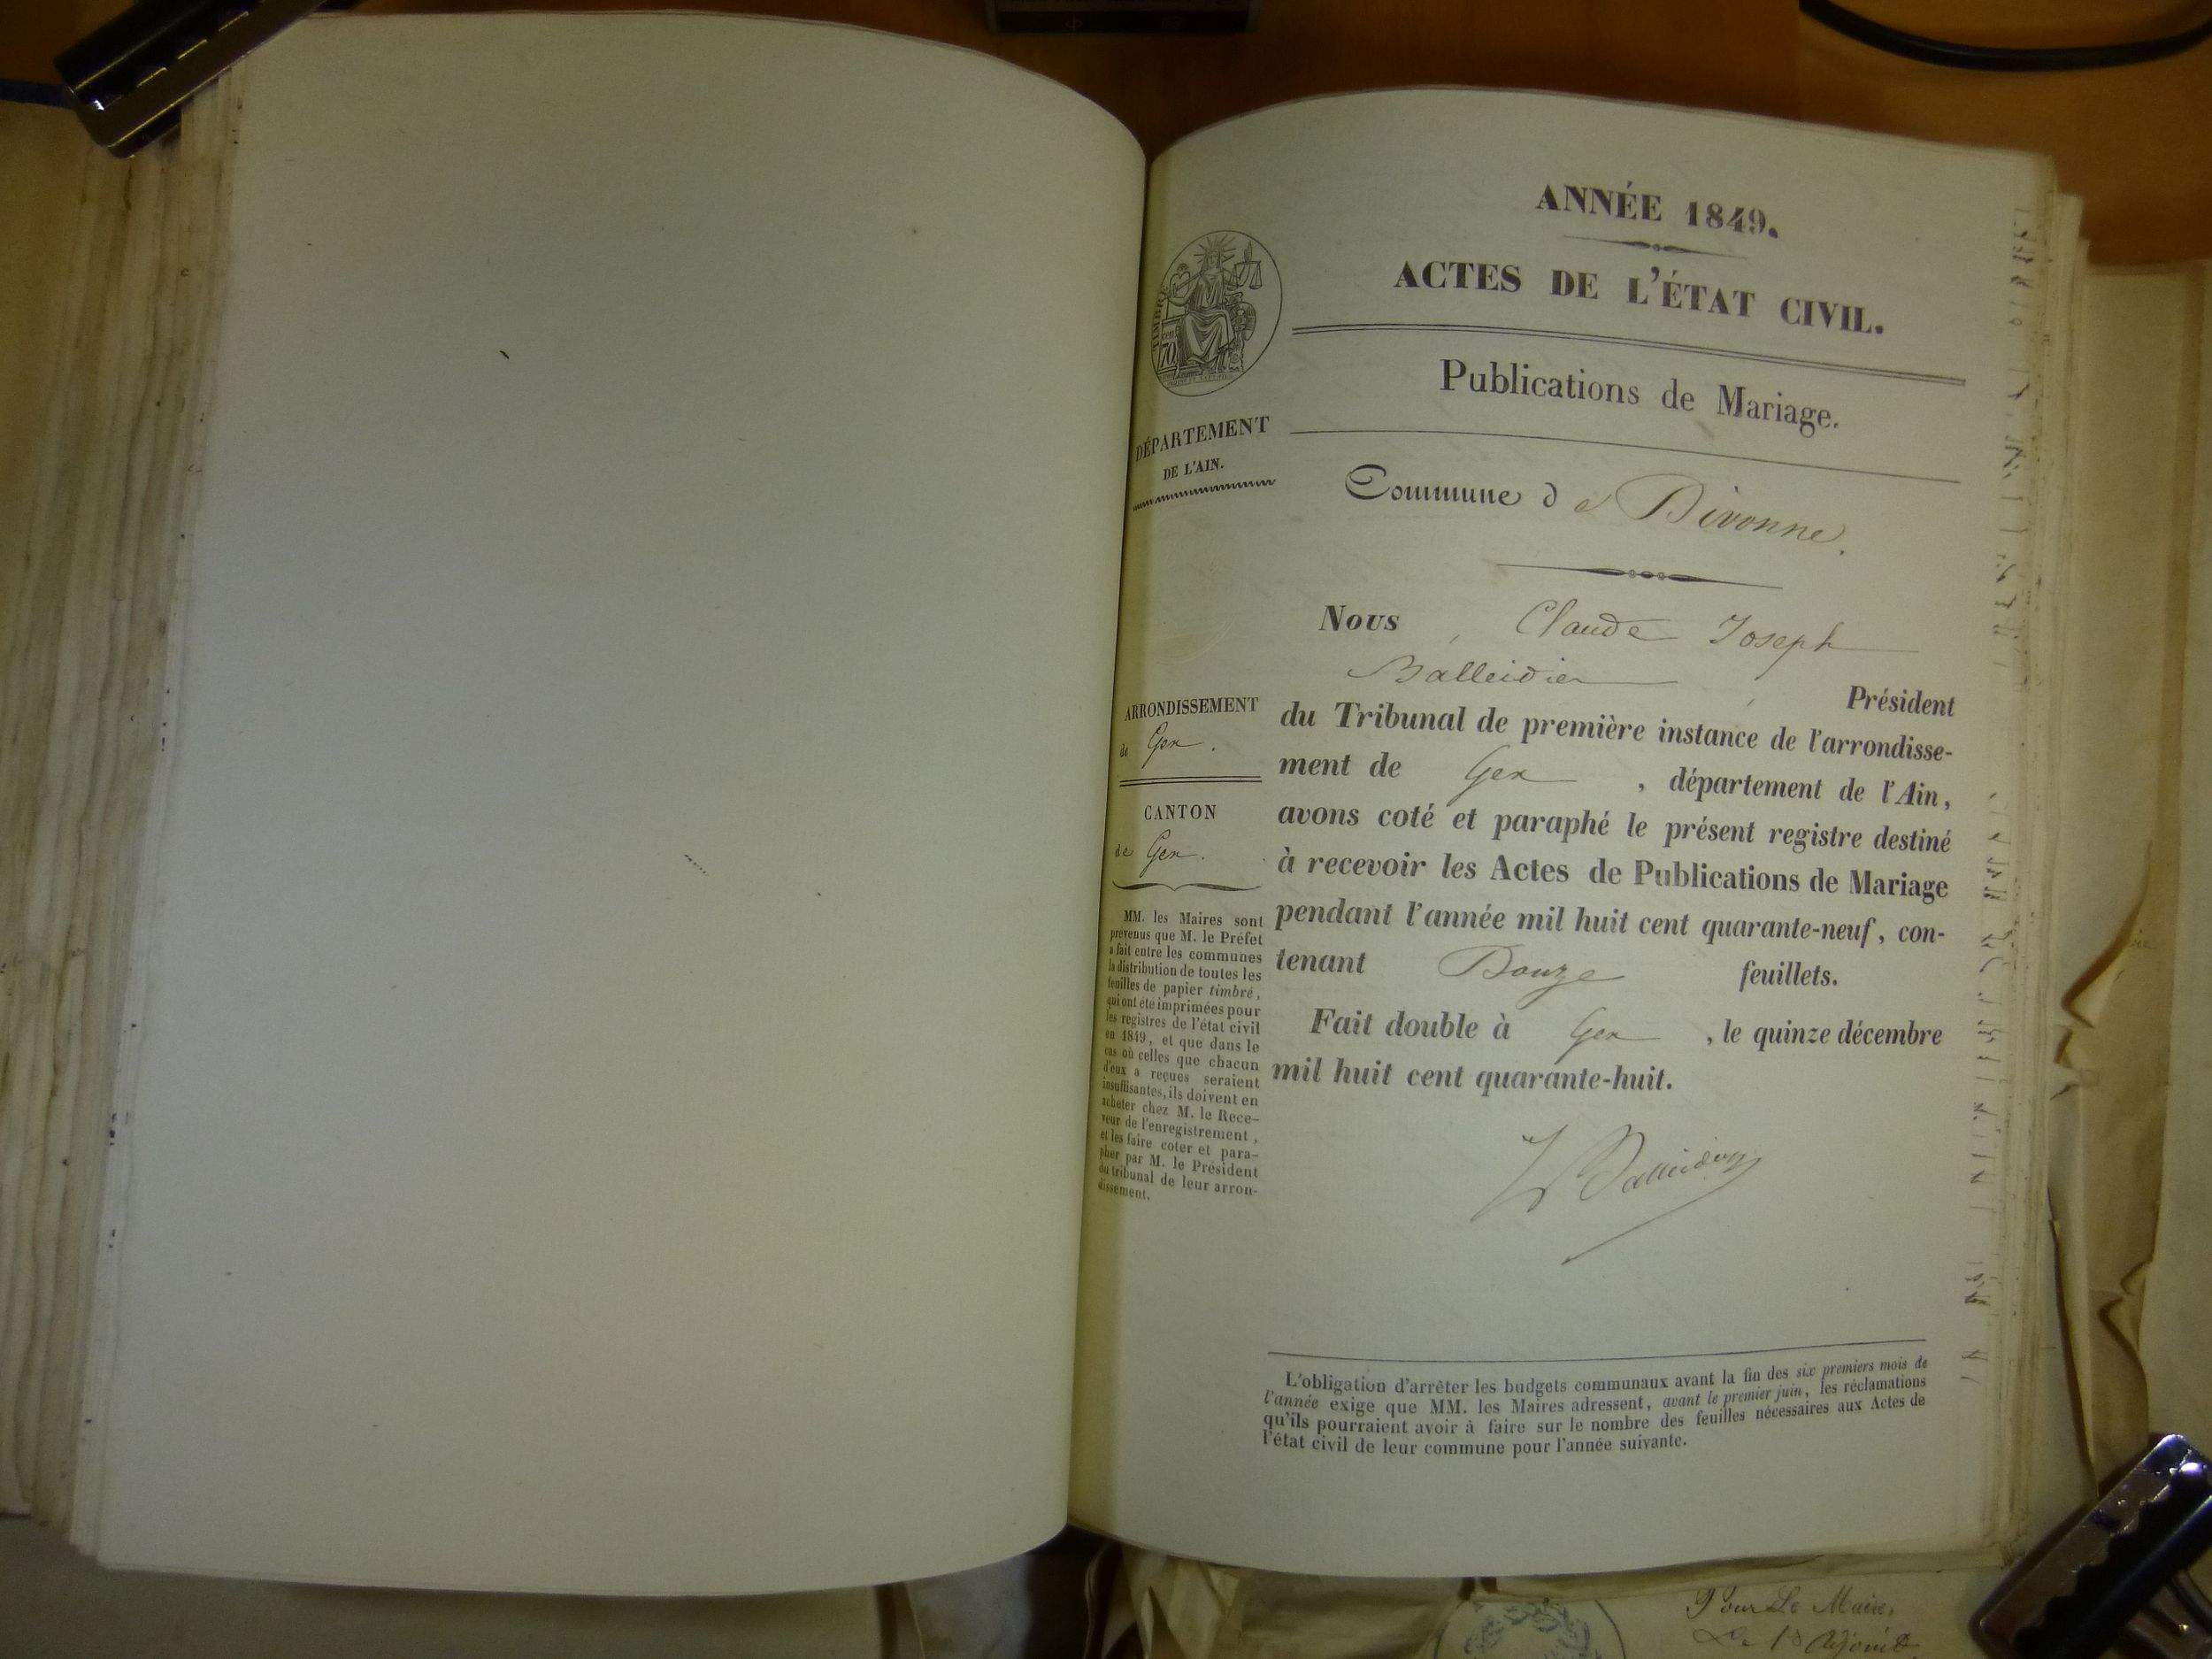 ANNÉE 1849.
ACTES DE L'ÉTAT CIVIL.
Publications de Mariage.
Commune de Divonne.
TIMBRE
70
DÉPARTEMENT
DE L'AIN.
ARRONDISSEMENT
de Gex.
CANTON
de Gex.
MM. les Maires sont
prévenus que M. le Préfet
a fait entre les communes
la distribution de toutes les
feuilles de papier timbré,
qui ont été imprimées pour
les registres de l'état civil
en 1849, et que dans le
cas où celles que chacun
d'eux a reçues seraient
insuffisantes, ils doivent en
acheter chez M. le Rece-
veur de l'enregistrement,
et les faire coter et para-
pher par M. le Président
du tribunal de leur arron-
dissement.
Nous, Claude Joseph
Balleidier, Président
du Tribunal de première instance de l'arrondisse-
ment de Gex, département de l'Ain,
avons coté et paraphé le présent registre destiné
à recevoir les Actes de Publications de Mariage
pendant l'année mil huit cent quarante-neuf, con-
tenant Douze feuillets.
Fait double à Gex, le quinze décembre
mil huit cent quarante-huit.
Balleidier
L'obligation d'arrêter les budgets communaux avant la fin des six premiers mois de
l'année exige que MM. les Maires adressent, avant le premier juin, les réclamations
qu'ils pourraient avoir à faire sur le nombre des feuilles nécessaires aux Actes de
l'état civil de leur commune pour l'année suivante.
Pour Le Maire,
Adjoint